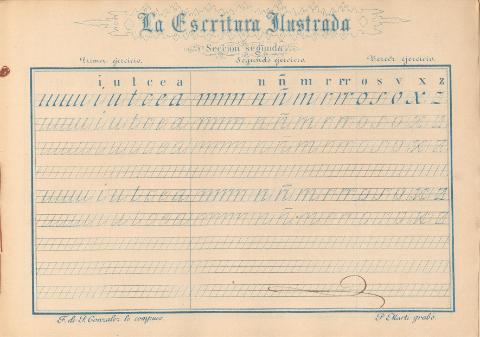 La Escritura Ilustrada
Sección segunda
Primer ejercicio. Segundo ejercicio. Tercer ejercicio.
i, u t c e a n ñ m r rr o s v x z
ıuuu i u t c e a mm n ñ m r rr o s v x z
i u t c e a mm n ñ m r rr o s v x z
i u t c e a mm n ñ m r rr o s v x z
i u t c e a mm n ñ m r rr o s v x z
F. de S. Gonzalez lo compuso. P. Marti grabó.